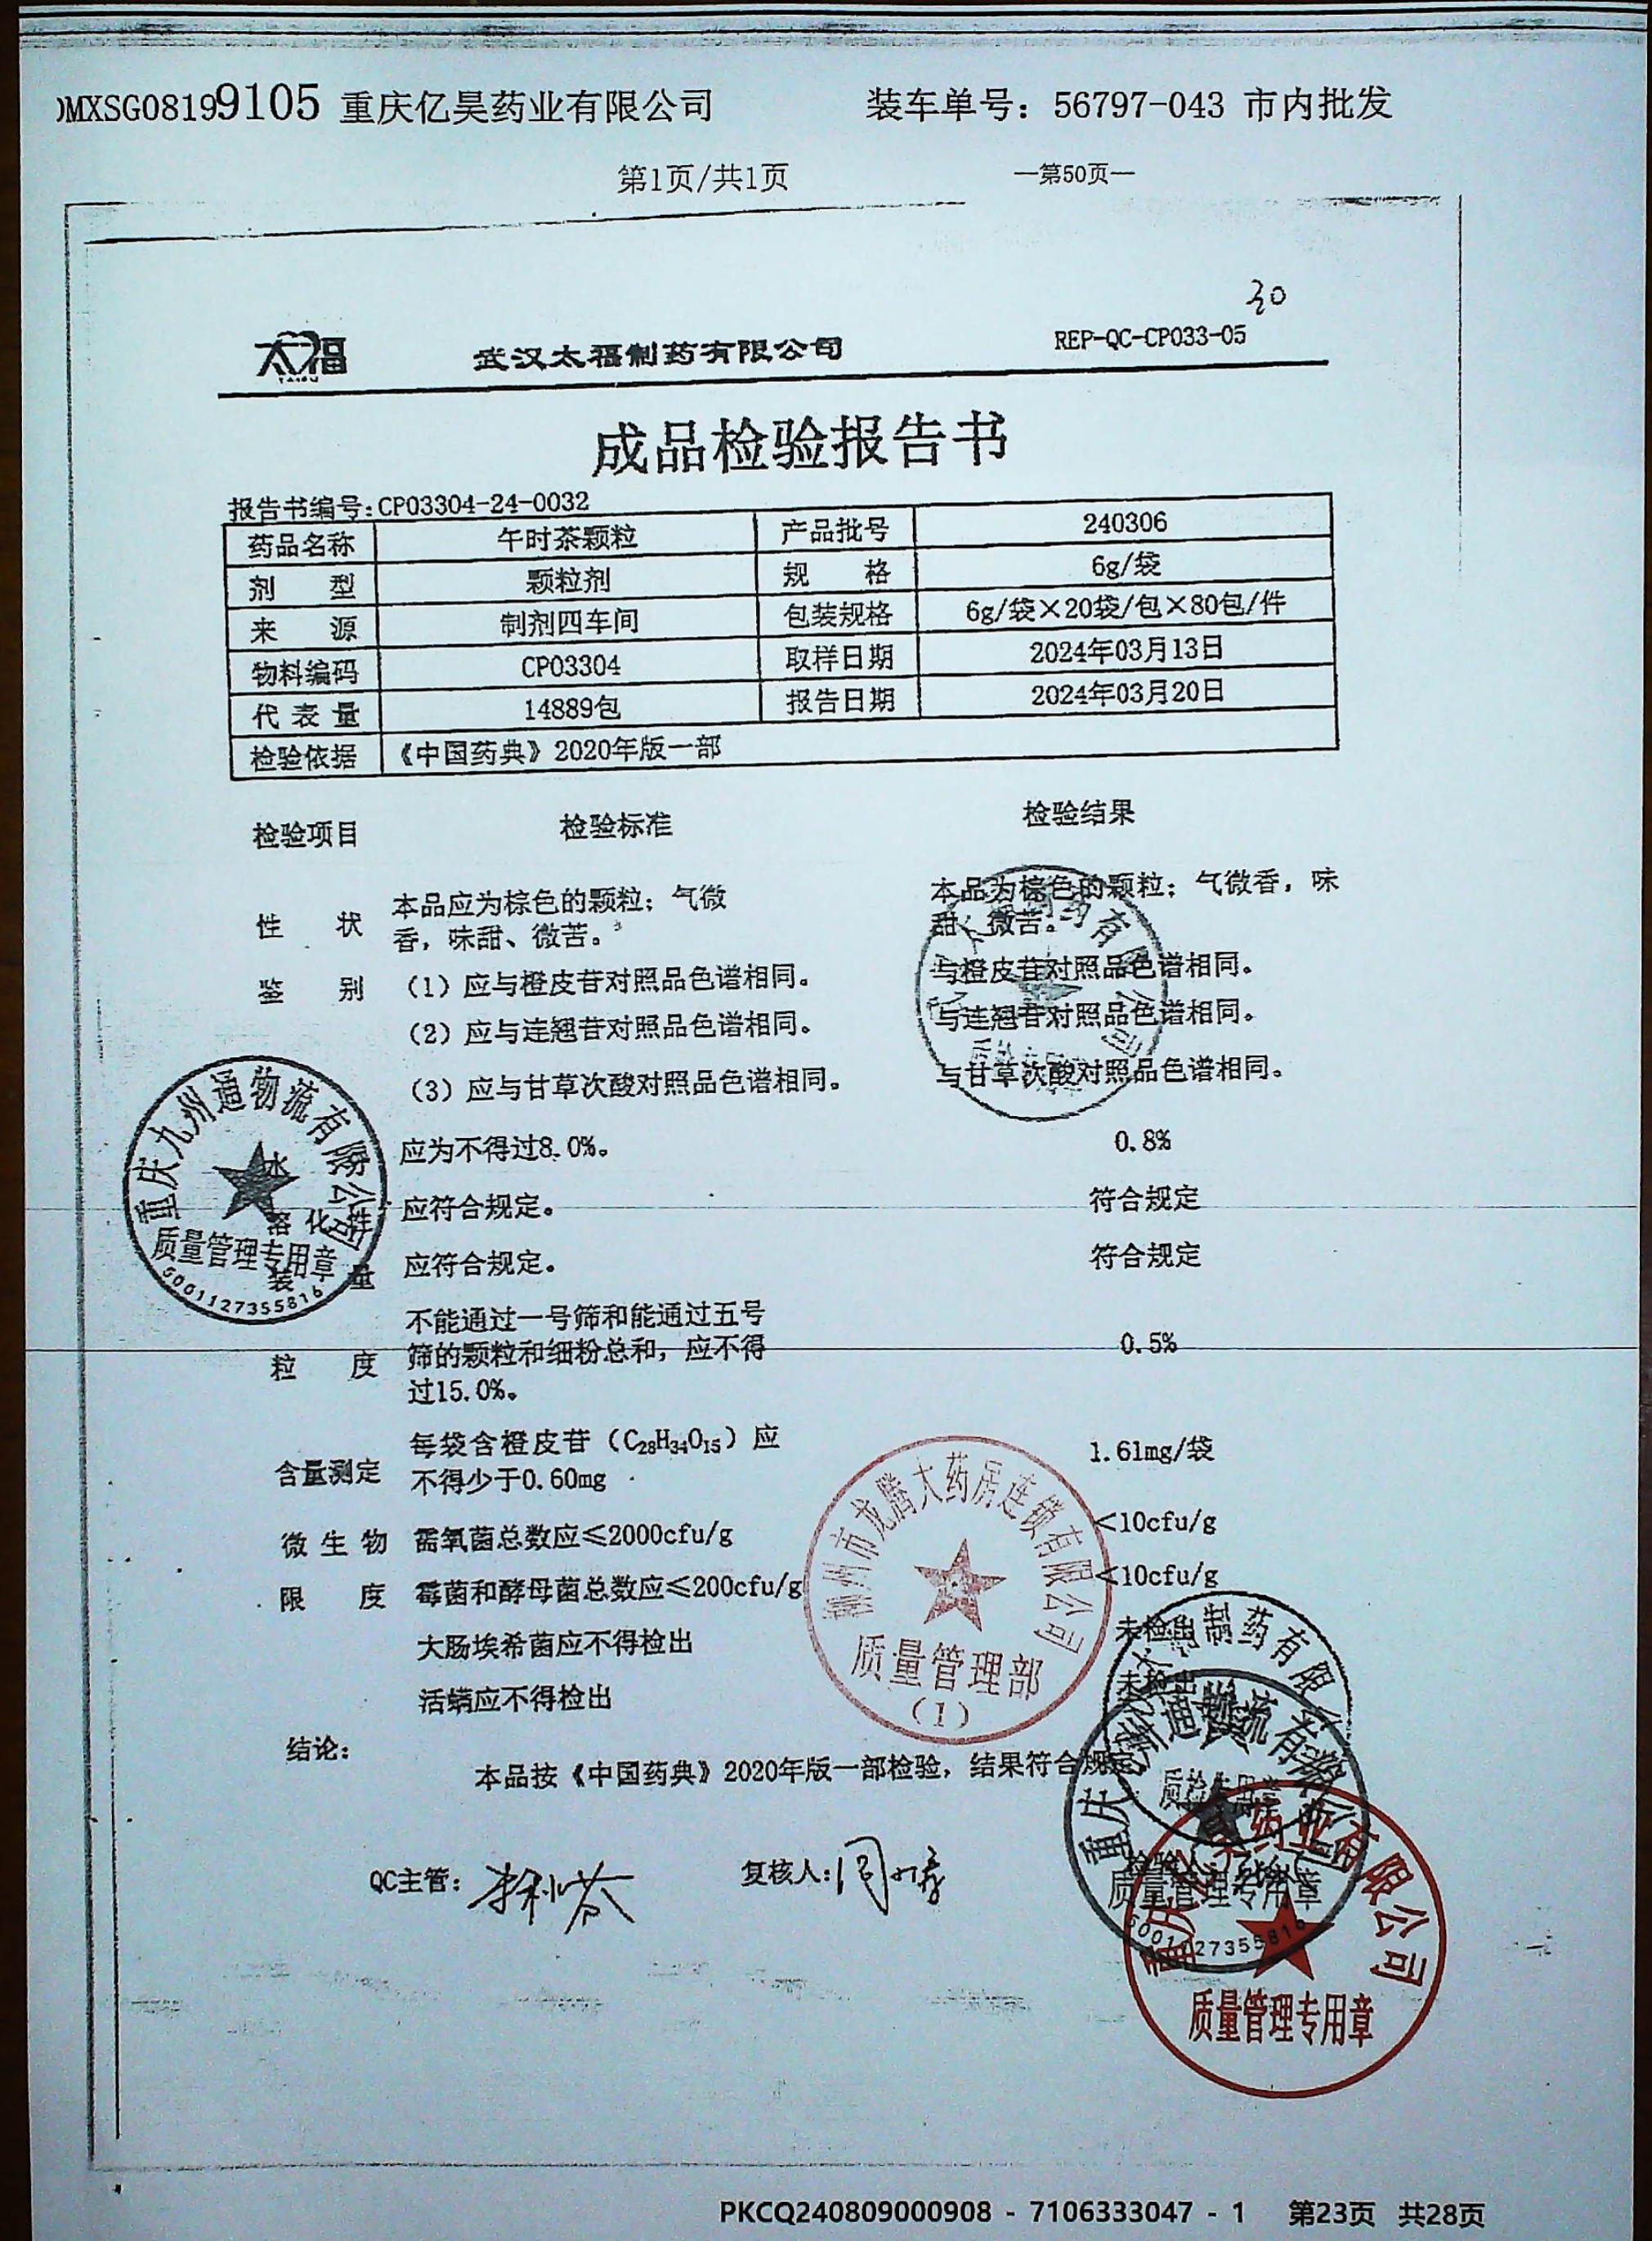 MXSG08199105 重庆亿昊药业有限公司 装车单号：56797-043 市内批发
第1页/共1页 —第50页—
30
太福 武汉太福制药有限公司 REP-QC-CP033-05
TAIFU
成品检验报告书
报告书编号:CP03304-24-0032
药品名称 午时茶颗粒 产品批号 240306
剂 型 颗粒剂 规 格 6g/袋
来 源 制剂四车间 包装规格 6g/袋×20袋/包×80包/件
物料编码 CP03304 取样日期 2024年03月13日
代 表 量 14889包 报告日期 2024年03月20日
检验依据 《中国药典》2020年版一部
检验项目 检验标准 检验结果
性 状 本品应为棕色的颗粒；气微 本品为棕色的颗粒；气微香，味
香，味甜、微苦。 甜、微苦。
鉴 别 （1）应与橙皮苷对照品色谱相同。 与橙皮苷对照品色谱相同。
（2）应与连翘苷对照品色谱相同。 与连翘苷对照品色谱相同。
（3）应与甘草次酸对照品色谱相同。 与甘草次酸对照品色谱相同。
水 应为不得过8.0%。 0.8%
溶 化 性 应符合规定。 符合规定
装 量 应符合规定。 符合规定
不能通过一号筛和能通过五号
粒 度 筛的颗粒和细粉总和，应不得 0.5%
过15.0%。
每袋含橙皮苷（C28H34O15）应 1.61mg/袋
含量测定 不得少于0.60mg
微 生 物 需氧菌总数应≤2000cfu/g <10cfu/g
限 度 霉菌和酵母菌总数应≤200cfu/g <10cfu/g
大肠埃希菌应不得检出 未检出
活螨应不得检出 未检出
结论：
本品按《中国药典》2020年版一部检验，结果符合规定
QC主管： 复核人： 检验人：
重庆九州通物流有限公司
质量管理专用章
5001127355816
柳州市龙腾大药房连锁有限公司
质量管理部
（1）
制药有限公司
质检专用章
质量管理专用章
5001127355816
药业有限公司
质量管理专用章
PKCQ240809000908 - 7106333047 - 1 第23页 共28页